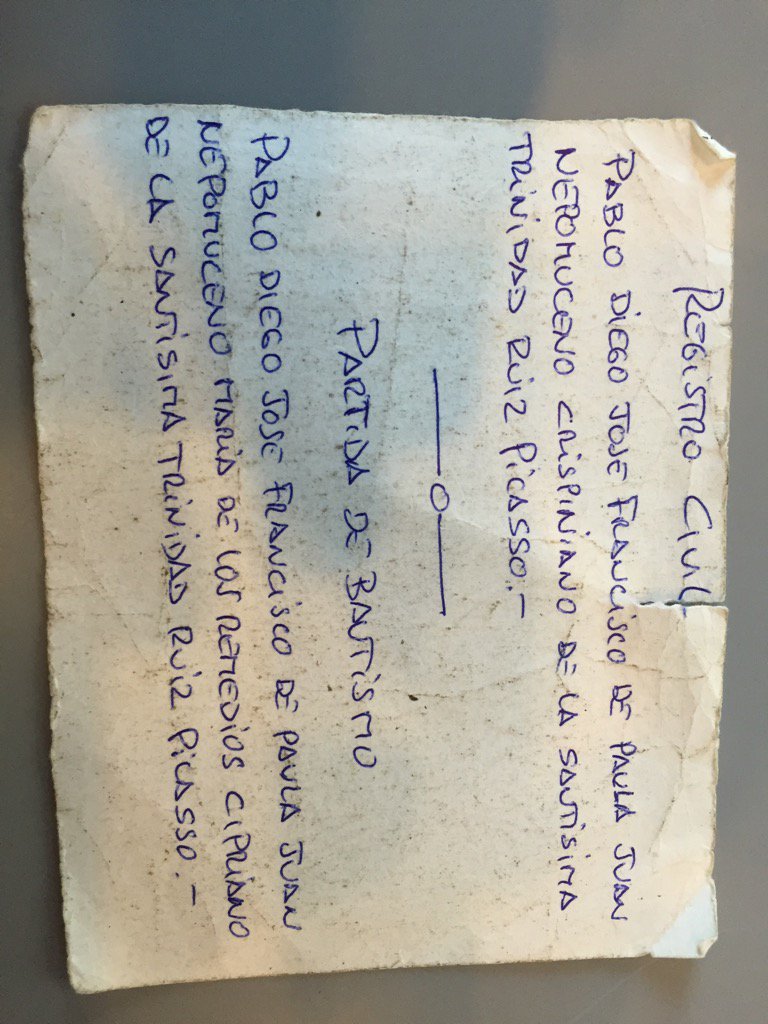 REGISTRO CIVIL
PABLO DIEGO JOSE FRANCISCO DE PAULA JUAN
NEPOMUCENO CRISPINIANO DE LA SANTISIMA
TRINIDAD RUIZ PICASSO.-
PARTIDA DE BAUTISMO
PABLO DIEGO JOSE FRANCISCO DE PAULA JUAN
NEPOMUCENO MARIA DE LOS REMEDIOS CIPRIANO
DE LA SANTISIMA TRINIDAD RUIZ PICASSO.-